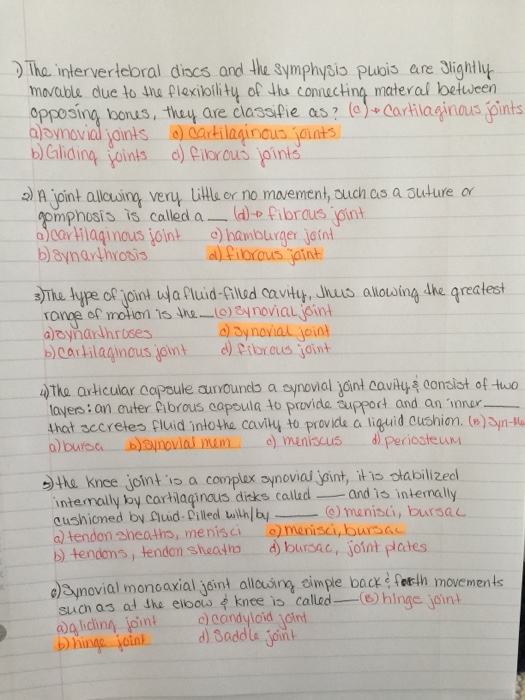 1) The intervertebral discs and the symphysis pubis are slightly
movable due to the flexibility of the connecting materal between
opposing bones, they are classifie as? (c)→ Cartilaginous joints
a) synovial joints c) cartilaginous joints
b) Gliding joints d) fibrous joints
2) A joint allowing very little or no movement, such as a suture or
gomphosis is called a __ (d)→ fibrous joint
a) cartilaginous joint c) hamburger joint
b) synarthrosis d) fibrous joint
3) The type of joint w/a fluid-filled cavity, thus allowing the greatest
range of motion is the __ (c) synovial joint
a) synarthroses c) synovial joint
b) cartilaginous joint d) fibrous joint
4) The articular capsule surrounds a synovial joint cavity & consist of two
layers: an outer fibrous capsula to provide support and an inner ___
that secretes fluid into the cavity to provide a liquid cushion. (b) Syn-
a) bursa b) synovial mem c) meniscus d) periosteum
5) the knee joint is a complex synovial joint, it is stabilized
internally by cartilaginous disks called ___ and is internally
cushioned by fluid-filled with/by ___ (c) menisci, bursac
a) tendon sheaths, menisci c) menisci, bursac
b) tendons, tendon sheaths d) bursac, joint plates
6) Synovial monoaxial joint allowing simple back & forth movements
such as at the elbow & knee is called __ (B) hinge joint
a) gliding joint c) condyloid joint
b) hinge joint d) Saddle joint